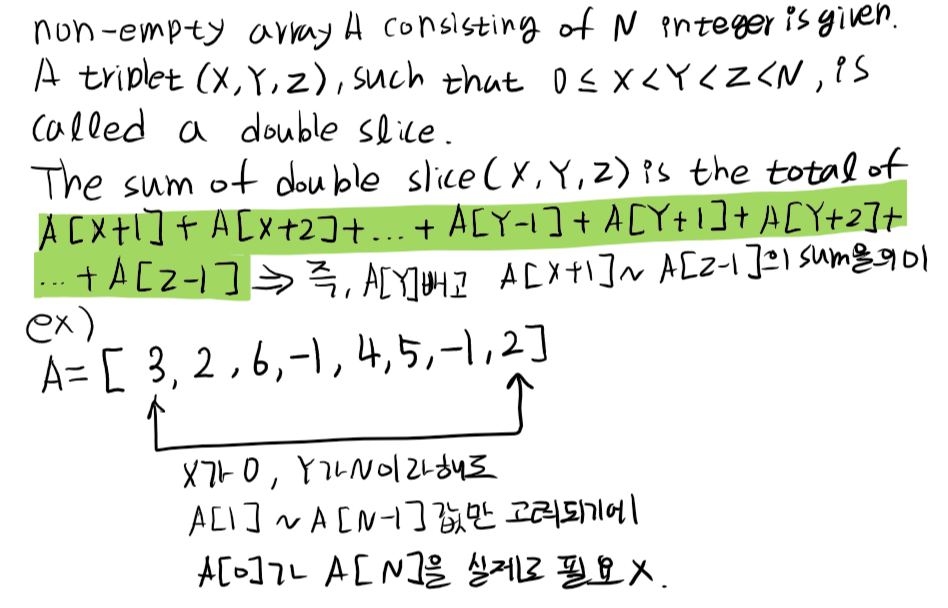 non-empty array A consisting of N integer is given.
A triplet (X,Y,Z), such that 0≤X<Y<Z<N, is
called a double slice.
The sum of double slice(X,Y,Z) is the total of
A[X+1]+A[X+2]+...+A[Y-1]+A[Y+1]+A[Y+2]+
...+A[Z-1] ⇒ 즉, A[Y]빼고 A[X+1]~A[Z-1]의 sum을 의미
ex)
A=[ 3, 2, 6, -1, 4, 5, -1, 2]
X가 0, Y가 N이라해도
A[1] ~ A[N-1] 값만 고려되기에
A[0]가 A[N]을 실제로 필요 X.